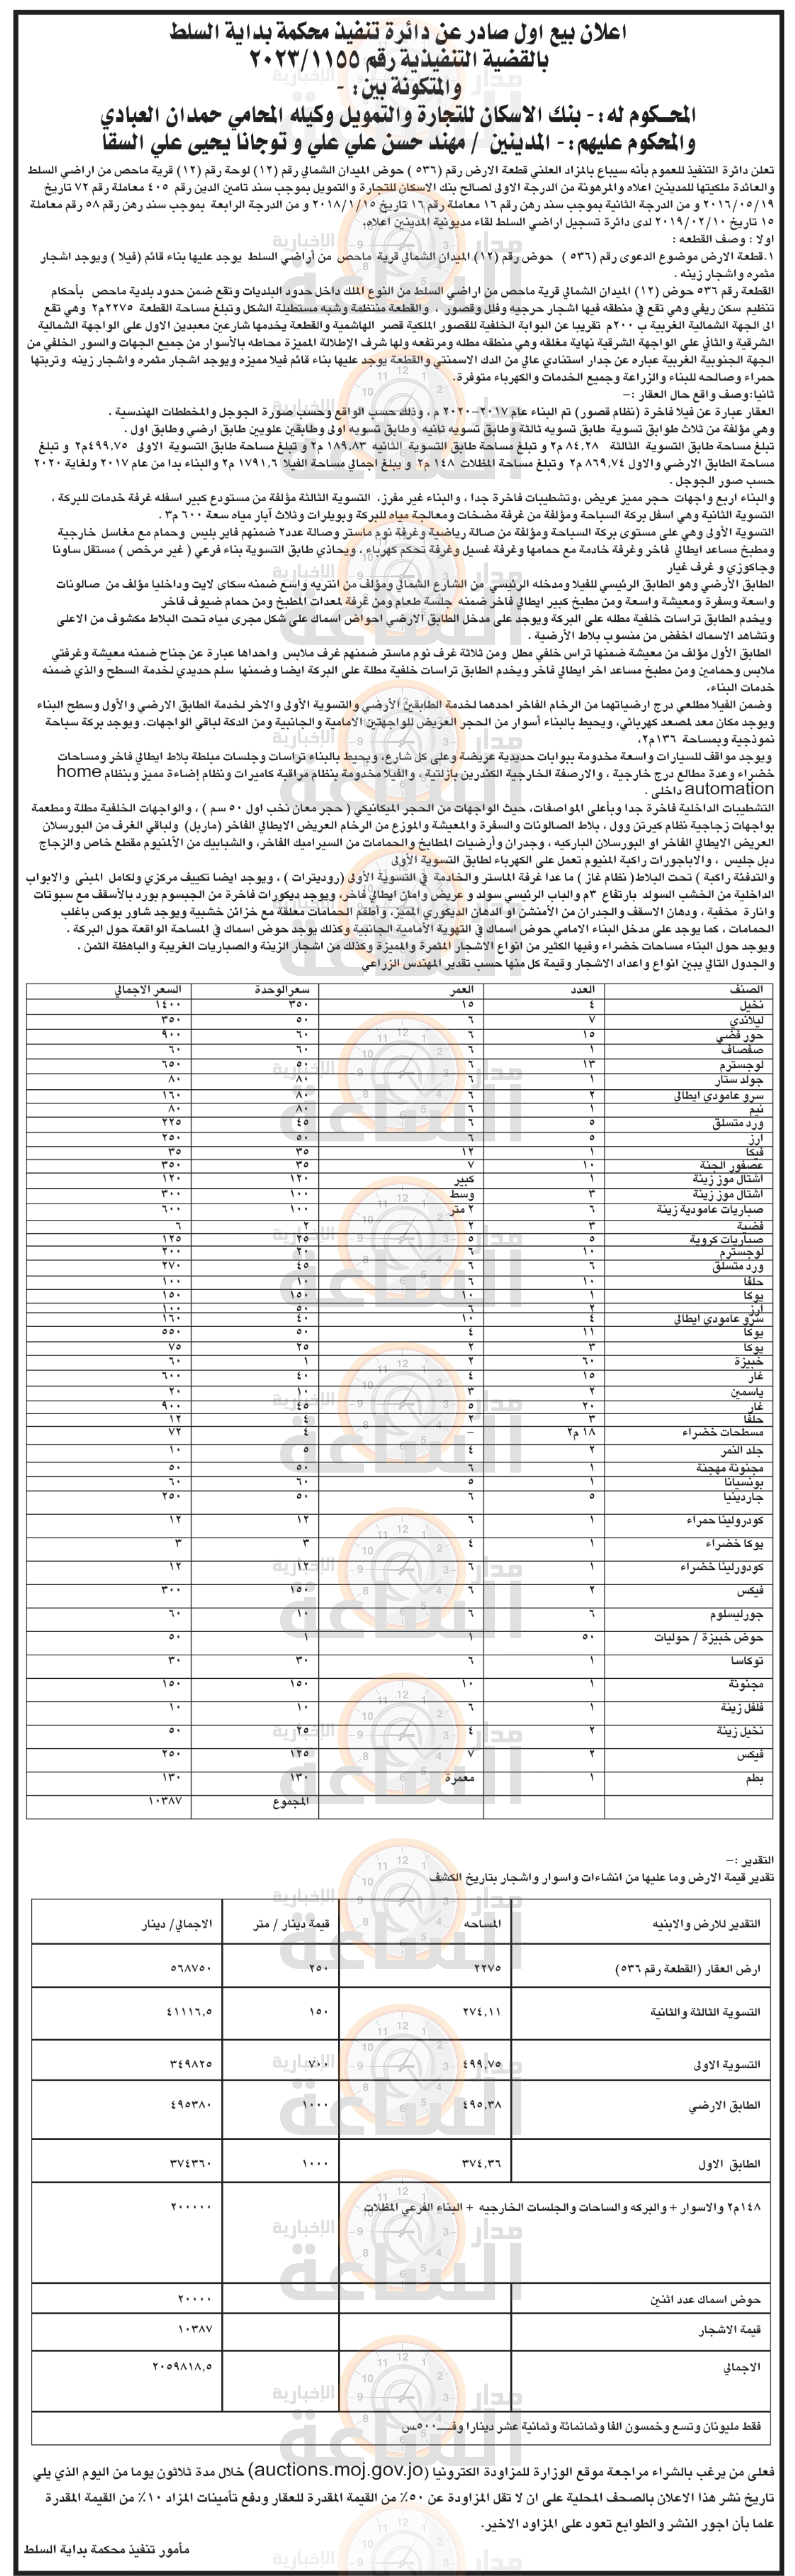 اعلان بيع اول صادر عن دائرة تنفيذ محكمة بداية السلط
بالقضية التنفيذية رقم ٢٠٢٣/١١٥٥
والمتكونة بين: -
المحكوم له: - بنك الاسكان للتجارة والتمويل وكيله المحامي حمدان العبادي
والمحكوم عليهم: - المدينين / مهند حسن علي علي و توجانا يحيى علي السقا
تعلن دائرة التنفيذ للعموم بأنه سيباع بالمزاد العلني قطعة الارض رقم (٥٣٦ ) حوض الميدان الشمالي رقم (١٢) لوحة رقم (١٢) قرية ماحص من اراضي السلط
والعائدة ملكيتها للمدينين اعلاه والمرهونة من الدرجة الاولى لصالح بنك الاسكان للتجارة و التمويل بموجب سند تامين الدين رقم ٤٠٥ معاملة رقم ٧٢ تاريخ
٢٠١٦/٠٥/١٩ و من الدرجة الثانية بموجب سند رهن رقم ١٦ معاملة رقم ١٦ تاريخ ٢٠١٨/١/١٥ و من الدرجة الرابعة بموجب سند رهن رقم ٥٨ رقم معاملة
١٥ تاريخ ٢٠١٩/٠٢/١٠ لدى دائرة تسجيل اراضي السلط لقاء مديونية المدينين اعلاه.
اولا : وصف القطعه :
١.قطعة الارض موضوع الدعوى رقم (٥٣٦ ) حوض رقم (١٢) الميدان الشمالي قرية ماحص من أراضي السلط يوجد عليها بناء قائم (فيلا ) ويوجد اشجار
مثمره واشجار زينه .
القطعة رقم ٥٣٦ حوض (١٢) الميدان الشمالي قرية ماحص من اراضي السلط من النوع الملك داخل حدود البلديات وتقع ضمن حدود بلدية ماحص بأحكام
تنظيم سكن ريفي وهي تقع في منطقه فيها اشجار حرجيه وفلل وقصور ، والقطعة منتظمة وشبه مستطيلة الشكل وتبلغ مساحة القطعة ٢٢٧٥م٢ وهي تقع
الى الجهة الشمالية الغربية ب ٢٠٠م تقريبا عن البوابة الخلفية للقصور الملكية قصر الهاشمية والقطعة يخدمها شارعين معبدين الاول على الواجهة الشمالية
الشرقية والثاني على الواجهة الشرقية نهاية مغلقه وهي منطقه مطله ومرتفعه ولها شرف الإطلالة المميزة محاطه بالأسوار من جميع الجهات والسور الخلفي من
الجهة الجنوبية الغربية عباره عن جدار استنادي عالي من الدك الاسمنتي والقطعة يوجد عليها بناء قائم فيلا مميزه ويوجد اشجار مثمره واشجار زينه وتربتها
حمراء وصالحه للبناء والزراعة وجميع الخدمات والكهرباء متوفرة.
ثانيا:وصف واقع حال العقار :–
العقار عبارة عن فيلا فاخرة (نظام قصور) تم البناء عام ٢٠١٧-٢٠٢٠ م ، وذلك حسب الواقع وحسب صورة الجوجل والمخططات الهندسية .
وهي مؤلفة من ثلاث طوابق تسوية طابق تسويه ثالثة وطابق تسويه ثانيه وطابق تسويه اولى وطابقين علويين طابق ارضي وطابق اول .
تبلغ مساحة طابق التسوية الثالثة ٨٤,٢٨ م٢ و تبلغ مساحة طابق التسوية الثانيه ١٨٩,٨٣ م٢ و تبلغ مساحة طابق التسوية الاولى ٤٩٩,٧٥م٢ و تبلغ
مساحة الطابق الارضي والاول ٨٦٩,٧٤ م٢ وتبلغ مساحة المظلات ١٤٨ م٢ و يبلغ اجمالي مساحة الفيلا ١٧٩١,٦ م٢ والبناء بدا من عام ٢٠١٧ ولغاية ٢٠٢٠
حسب صور الجوجل .
والبناء اربع واجهات حجر مميز عريض ،وتشطيبات فاخرة جدا ، والبناء غير مفرز، التسوية الثالثة مؤلفة من مستودع كبير اسفله غرفة خدمات للبركة ،
التسوية الثانية وهي اسفل بركة السباحة ومؤلفة من غرفة مضخات ومعالجة مياه للبركة وبويلرات وثلاث آبار مياه سعة ٦٠٠ م٣ .
التسوية الأولى وهي على مستوى بركة السباحة ومؤلفة من صالة رياضية وغرفة نوم ماستر وصالة عدد٢ ضمنهم فاير بليس وحمام مع مغاسل خارجية
ومطبخ مساعد ايطالي فاخر وغرفة خادمة مع حمامها وغرفة غسيل وغرفة تحكم كهرباء ، ويحاذي طابق التسوية بناء فرعي ( غير مرخص ) مستقل ساونا
وجاكوزي و غرف غيار
الطابق الأرضي وهو الطابق الرئيسي للفيلا ومدخله الرئيسي من الشارع الشمالي ومؤلف من انتريه واسع ضمنه سكاي لايت وداخليا مؤلف من صالونات
واسعة وسفرة ومعيشة واسعة ومن مطبخ كبير ايطالي فاخر ضمنه جلسة طعام ومن غرفة لمعدات المطبخ ومن حمام ضيوف فاخر
ويخدم الطابق تراسات خلفية مطله على البركة ويوجد على مدخل الطابق الارضي احواض اسماك على شكل مجرى مياه تحت البلاط مكشوف من الاعلى
وتشاهد الاسماك اخفض من منسوب بلاط الأرضية .
الطابق الأول مؤلف من معيشة ضمنها تراس خلفي مطل ومن ثلاثة غرف نوم ماستر ضمنهم غرف ملابس واحداها عبارة عن جناح ضمنه معيشة وغرفتي
ملابس وحمامين ومن مطبخ مساعد اخر ايطالي فاخر ويخدم الطابق تراسات خلفية مطلة على البركة ايضا وضمنها سلم حديدي لخدمة السطح والذي ضمنه
خدمات البناء،
وضمن الفيلا مطلعي درج ارضياتهما من الرخام الفاخر احدهما لخدمة الطابقين الأرضي والتسوية الأولى والاخر لخدمة الطابق الارضي والأول وسطح البناء
ويوجد مكان معد لمصعد كهربائي، ويحيط بالبناء أسوار من الحجر العريض للواجهتين الامامية والجانبية ومن الدكة لباقي الواجهات. ويوجد بركة سباحة
نموذجية وبمساحة ١٣٦م٢،
ويوجد مواقف للسيارات واسعة مخدومة ببوابات حديدية عريضة وعلى كل شارع، ويحيط بالبناء تراسات وجلسات مبلطة بلاط ايطالي فاخر ومساحات
خضراء وعدة مطالع درج خارجية ، والارصفة الخارجية الكندرين بازلتية ، والفيلا مخدومة بنظام مراقبة كاميرات ونظام إضاءة مميز وبنظام home
automation داخلي .
التشطيبات الداخلية فاخرة جدا وبأعلى المواصفات، حيث الواجهات من الحجر الميكانيكي ( حجر معان نخب اول ٥٠ سم ) ، والواجهات الخلفية مطلة ومطعمة
بواجهات زجاجية نظام كيرتن وول ، بلاط الصالونات والسفرة والمعيشة والموزع من الرخام العريض الايطالي الفاخر (ماربل) ولباقي الغرف من البورسلان
العريض الايطالي الفاخر او البورسلان الباركيه ، وجدران وأرضيات المطابخ والحمامات من السيراميك الفاخر، والشبابيك من الألمنيوم مقطع خاص والزجاج
دبل جليس ، والاباجورات راكبة المنيوم تعمل على الكهرباء لطابق التسوية الأولى
والتدفئة راكبة ) تحت البلاط( نظام غاز ) ما عدا غرفة الماستر والخادمة في التسوية الأولى (روديترات ) ، ويوجد ايضا تكييف مركزي ولكامل المبنى والابواب
الداخلية من الخشب السولد بارتفاع ٣م والباب الرئيسي سولد و عريض وامان ايطالي فاخر، ويوجد ديكورات فاخرة من الجبسوم بورد بالأسقف مع سبوتات
وانارة مخفية ، ودهان الاسقف والجدران من الأمنشن او الدهان الديكوري المميز، وأطقم الحمامات معلقة مع خزائن خشبية ويوجد شاور بوكس باغلب
الحمامات ، كما يوجد على مدخل البناء الامامي حوض اسماك في التهوية الأمامية الجانبية وكذلك يوجد حوض اسماك في المساحة الواقعة حول البركة .
ويوجد حول البناء مساحات خضراء وفيها الكثير من انواع الاشجار المثمرة والمميزة وكذلك من اشجار الزينة والصباريات الغريبة والباهظة الثمن .
والجدول التالي يبين انواع واعداد الاشجار وقيمة كل منها حسب تقدير المهندس الزراعي
الصنف العدد العمر سعرالوحدة السعر الاجمالي
نخيل ٤ ١٥ ٣٥٠ ١٤٠٠
ليلاندي ٧ ٦ ٥٠ ٣٥٠
حور فضي ١٥ ٦ ٦٠ ٩٠٠
صفصاف ١ ٦ ٦٠ ٦٠
لوجسترم ١٣ ٦ ٥٠ ٦٥٠
جولد ستار ١ ٦ ٨٠ ٨٠
سرو عامودي ايطالي ٢ ٦ ٨٠ ١٦٠
نيم ١ ٦ ٨٠ ٨٠
ورد متسلق ٥ ٦ ٤٥ ٢٢٥
ارز ٥ ٦ ٥٠ ٢٥٠
فيكا ١ ١٢ ٣٥ ٣٥
عصفور الجنة ١٠ ٧ ٣٥ ٣٥٠
اشتال موز زينة ١ كبير ١٢٠ ١٢٠
اشتال موز زينة ٣ وسط ١٠٠ ٣٠٠
صباريات عامودية زينة ٦ ٢ متر ١٠٠ ٦٠٠
فضية ٣ ٢ ٢ ٦
صباريات كروية ٥ ٥ ٢٥ ١٢٥
لوجسترم ١٠ ٦ ٢٠ ٢٠٠
ورد متسلق ٦ ٦ ٤٥ ٢٧٠
حلفا ١٠ ٦ ١٠ ١٠٠
يوكا ١ ١٠ ١٥٠ ١٥٠
ارز ٢ ٦ ٥٠ ١٠٠
سرو عامودي ايطالي ٤ ١٠ ٤٠ ١٦٠
يوكا ١١ ٤ ٥٠ ٥٥٠
يوكا ٣ ٢ ٢٥ ٧٥
خبيزة ٦٠ ٢ ١ ٦٠
غار ١٥ ٤ ٤٠ ٦٠٠
ياسمين ٢ ٣ ١٠ ٢٠
غار ٢٠ ٥ ٤٥ ٩٠٠
حلفا ٣ ٢ ٤ ١٢
مسطحات خضراء ١٨ م٢ – ٤ ٧٢
جلد النمر ٢ ٤ ٥ ١٠
مجنونة مهجنة ١ ٦ ٥٠ ٥٠
بونسيانا ١ ٥ ٦٠ ٦٠
جاردينيا ٥ ٦ ٥٠ ٢٥٠
كودرولينا حمراء ١ ٦ ١٢ ١٢
يوكا خضراء ١ ٤ ٣ ٣
كودورلينا خضراء ١ ٦ ١٢ ١٢
فيكس ٢ ٦ ١٥٠ ٣٠٠
جورليسلوم ٦ ٦ ١٠ ٦٠
حوض خبيزة / حوليات ٥٠ ١ ١ ٥٠
توكاسا ١ ٦ ٣٠ ٣٠
مجنونة ١ ١٠ ١٥٠ ١٥٠
فلفل زينة ١ ٦ ١٠ ١٠
نخيل زينة ٢ ٤ ٢٥ ٥٠
فيكس ٢ ٧ ١٢٥ ٢٥٠
بطم ١ معمرة ١٣٠ ١٣٠
المجموع ١٠٣٨٧
التقدير :–
تقدير قيمة الارض وما عليها من انشاءات واسوار واشجار بتاريخ الكشف
التقدير للارض والابنيه المساحه قيمة دينار / متر الاجمالي/ دينار
ارض العقار (القطعة رقم ٥٣٦) ٢٢٧٥ ٢٥٠ ٥٦٨٧٥٠
التسوية الثالثة والثانية ٢٧٤,١١ ١٥٠ ٤١١١٦,٥
التسوية الاولى ٤٩٩,٧٥ ٧٠٠ ٣٤٩٨٢٥
الطابق الارضي ٤٩٥,٣٨ ١٠٠٠ ٤٩٥٣٨٠
الطابق الاول ٣٧٤,٣٦ ١٠٠٠ ٣٧٤٣٦٠
١٤٨م٢ والاسوار + والبركه والساحات والجلسات الخارجيه + البناء الفرعي المظلات ٢٠٠٠٠٠
حوض اسماك عدد اثنين ٢٠٠٠٠
قيمة الاشجار ١٠٣٨٧
الاجمالي ٢٠٥٩٨١٨,٥
فقط مليونان وتسع وخمسون الفا وثمانمائة وثمانية عشر دينارا وفـــ٥٠٠ــلس
فعلى من يرغب بالشراء مراجعة موقع الوزارة للمزاودة الكترونيا (auctions.moj.gov.jo) خلال مدة ثلاثون يوما من اليوم الذي يلي
تاريخ نشر هذا الاعلان بالصحف المحلية على ان لا تقل المزاودة عن ٥٠٪ من القيمة المقدرة للعقار ودفع تأمينات المزاد ١٠٪ من القيمة المقدرة
علما بأن اجور النشر والطوابع تعود على المزاود الاخير.
مأمور تنفيذ محكمة بداية السلط
مدار الساعة الإخبارية